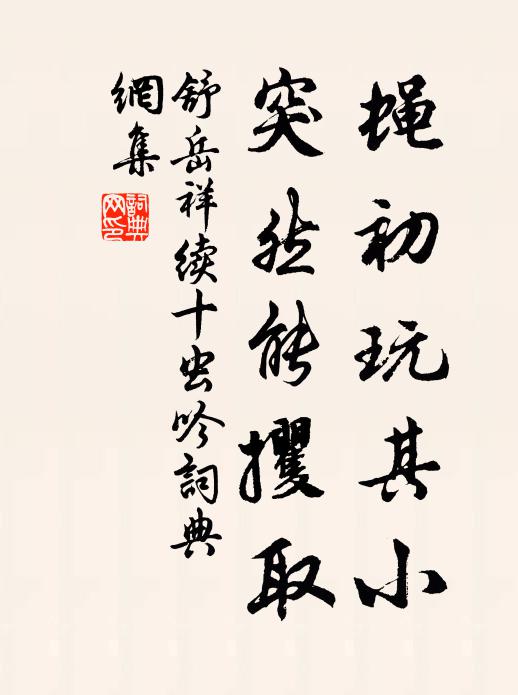 蝇初玩其小
突然能攫取
舒岳祥续十虫吟词典
網集
詞典
网印